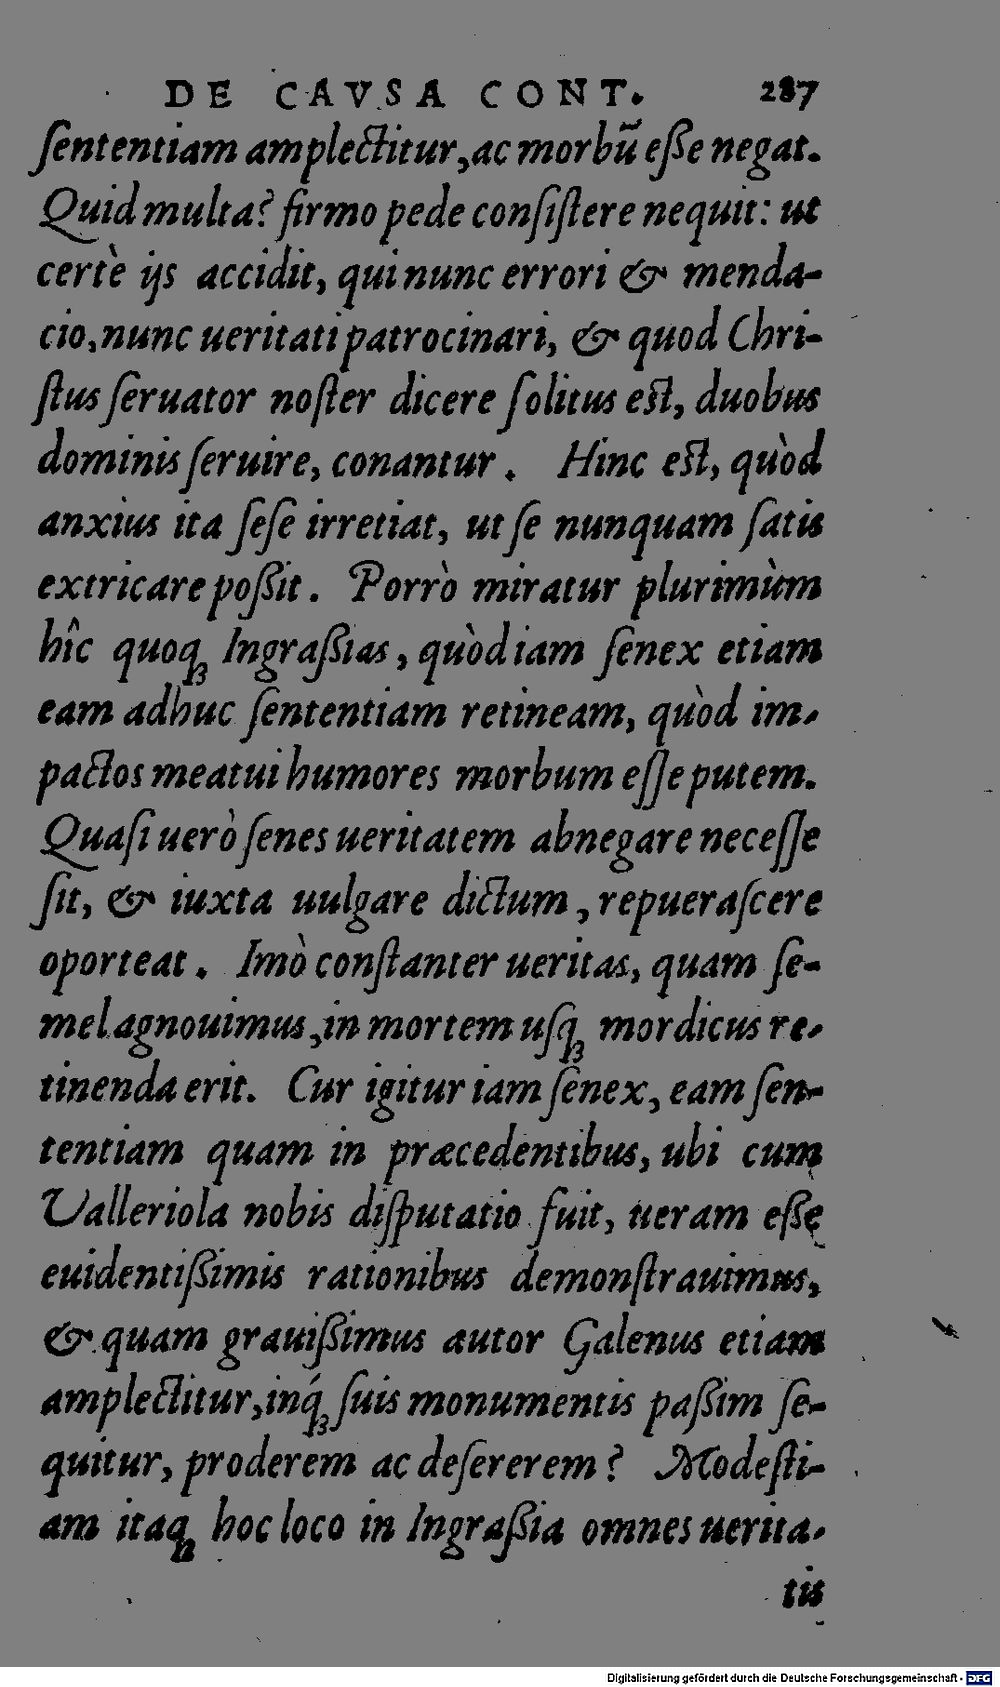 DE CAVSA CONT. 287
ſententiam amplectitur, ac morbũ eſſe negat.
Quid multa? firmo pede conſiſtere nequit: ut
certè ijs accidit, qui nunc errori & menda-
cio, nunc ueritati patrocinari, & quod Chri-
ſtus ſeruator noſter dicere ſolitus eſt, duobus
dominis ſeruire, conantur. Hinc eſt, quòd
anxius ita ſeſe irretiat, ut ſe nunquam ſatis
extricare poßit. Porrò miratur plurimùm
hîc quoq́ꝫ Ingraßias, quòd iam ſenex etiam
eam adhuc ſententiam retineam, quòd im-
pactos meatui humores morbum eſſe putem.
Quaſi uerò ſenes ueritatem abnegare neceſſe
ſit, & iuxta uulgare dictum, repueraſcere
oporteat. Imò conſtanter ueritas, quam ſe-
mel agnouimus, in mortem uſqꝫ mordicus re-
tinenda erit. Cur igitur iam ſenex, eam ſen-
tentiam quam in præcedentibus, ubi cum
Valleriola nobis diſputatio fuit, ueram eße
euidentißimis rationibus demonſtrauimus,
& quam grauißimus autor Galenus etiam
amplectitur, inq́ꝫ ſuis monumentis paßim ſe-
quitur, proderem ac deſererem? Modeſti-
am itaqꝫ hoc loco in Ingraßia omnes uerita-
tis
Digitalisierung gefördert durch die Deutsche Forschungsgemeinschaft - DFG